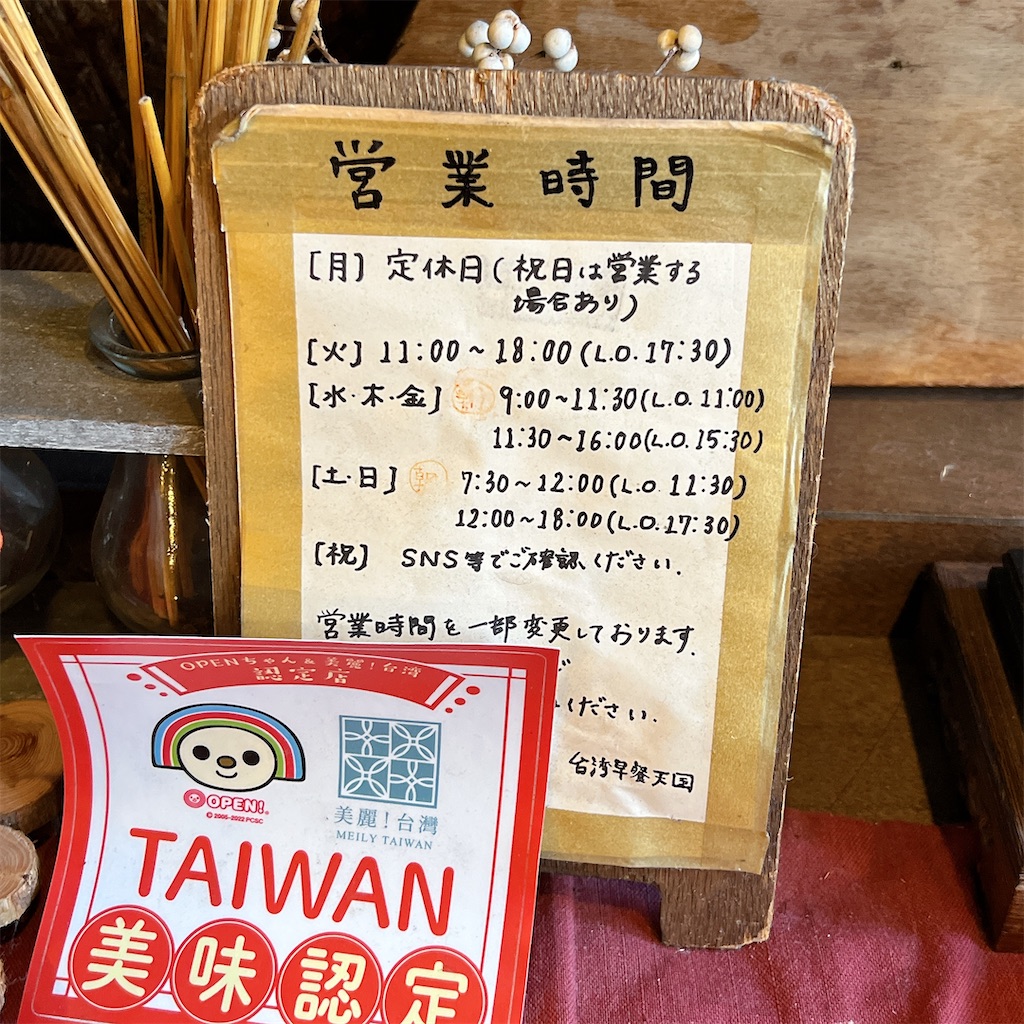 営業時間
[月] 定休日(祝日は営業する
場合あり)
[火] 11:00~18:00(L.O.17:30)
[水・木・金] 朝 9:00~11:30(L.O.11:00)
11:30~16:00(L.O.15:30)
[土・日] 朝 7:30~12:00(L.O.11:30)
12:00~18:00(L.O.17:30)
[祝] SNS等でご確認ください.
営業時間を一部変更しております.
ください.
台湾早餐天国
OPENちゃん&美麗!台湾
認定店
OPEN!
© 2005-2022 PCSC
美麗!台灣
MEILY TAIWAN
TAIWAN
美味認定